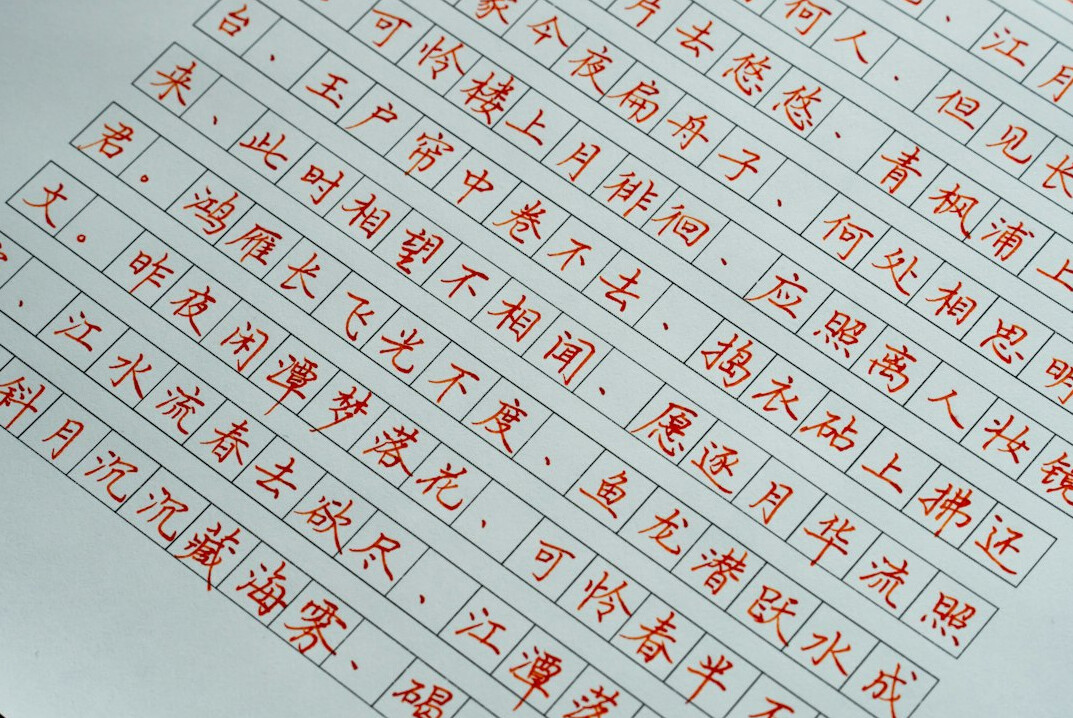 、江月
何人、但见长
片去悠悠、青枫浦上
家今夜扁舟子、何处相思明
可怜楼上月徘徊、应照离人妆镜
台、玉户帘中卷不去、捣衣砧上拂还
来、此时相望不相闻、愿逐月华流照
君。鸿雁长飞光不度、鱼龙潜跃水成
文。昨夜闲潭梦落花、可怜春半不
、江水流春去欲尽、江潭落
斜月沉沉藏海雾、碣